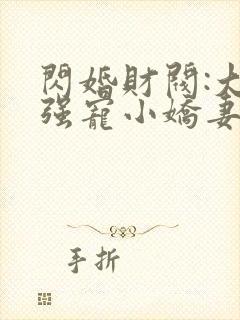 閃婚財閥:大
强寵小嬌妻
手折